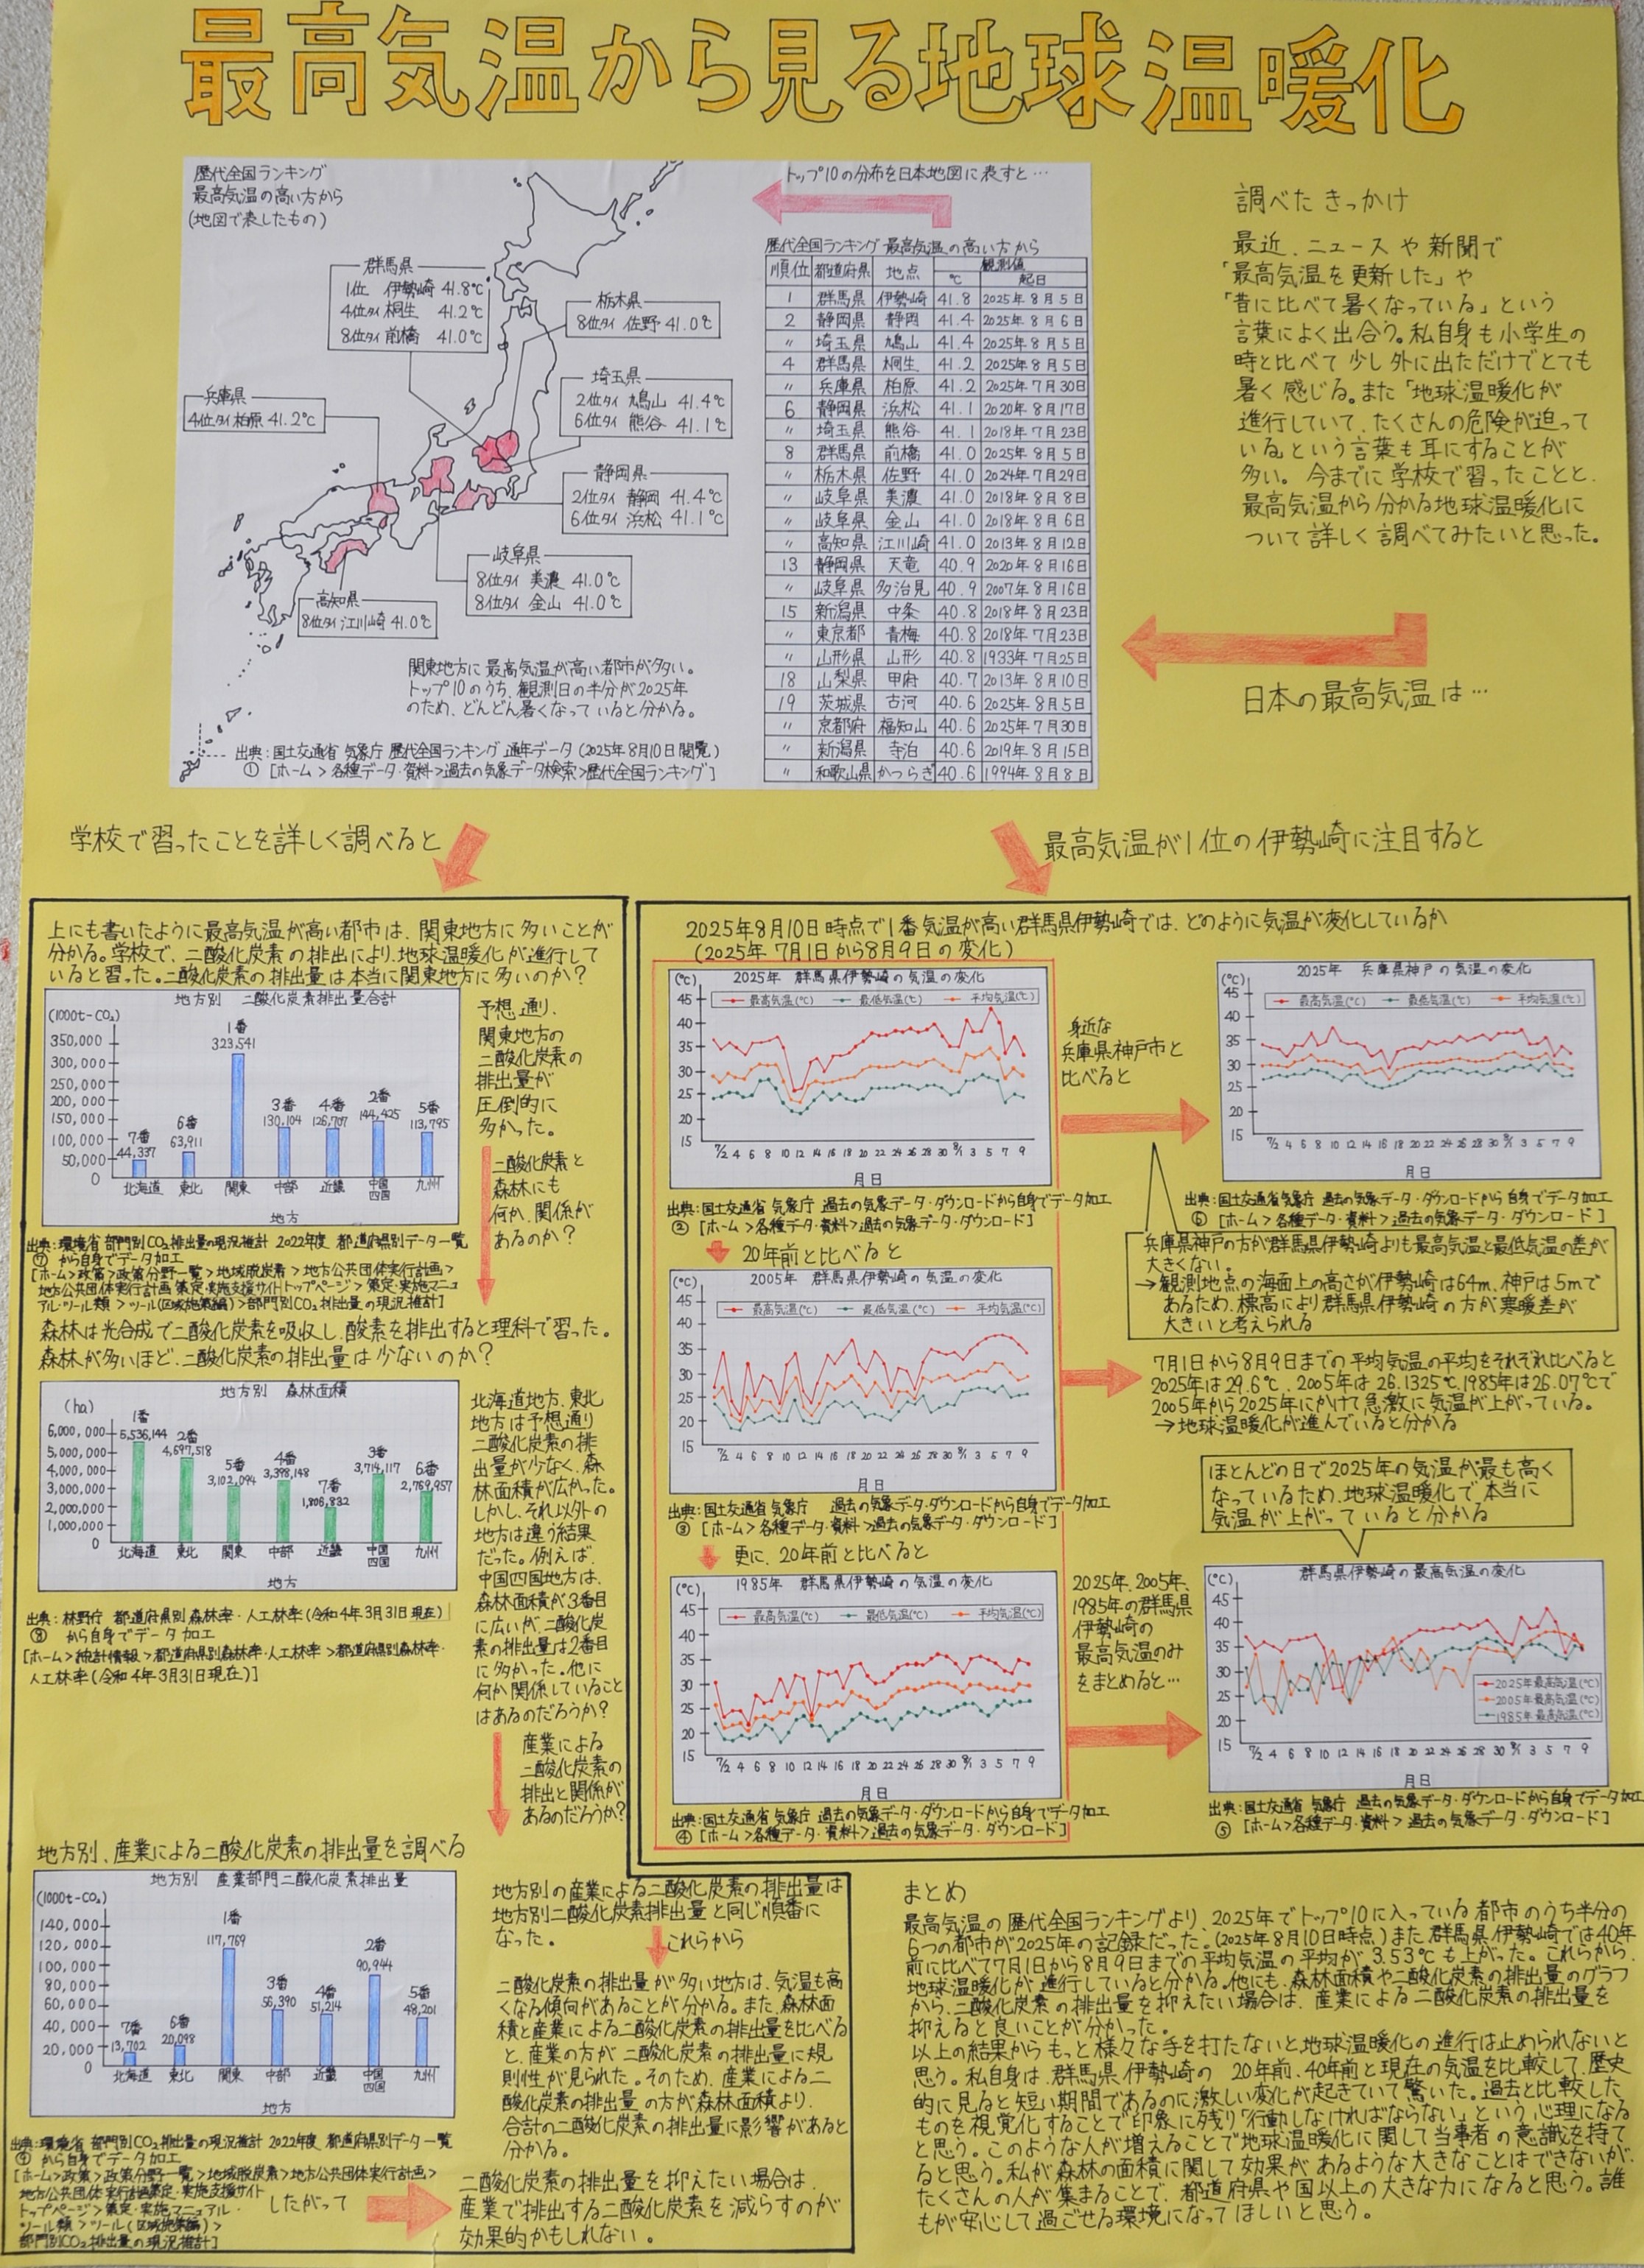 最高気温から見る地球温暖化
歴代全国ランキング
最高気温の高い方から
(地図で表したもの)
群馬県
1位 伊勢崎 41.8℃
4位タイ 桐生 41.2℃
8位タイ 前橋 41.0℃
栃木県
8位タイ 佐野 41.0℃
兵庫県
4位タイ 柏原 41.2℃
埼玉県
2位タイ 鳩山 41.4℃
6位タイ 熊谷 41.1℃
静岡県
2位タイ 静岡 41.4℃
6位タイ 浜松 41.1℃
岐阜県
8位タイ 美濃 41.0℃
8位タイ 金山 41.0℃
高知県
8位タイ 江川崎 41.0℃
関東地方に最高気温が高い都市が多い。
トップ10のうち、観測日の半分が2025年
のため、どんどん暑くなっていると分かる。
出典:国土交通省 気象庁 歴代全国ランキング 通年データ (2025年8月10日閲覧)
① [ホーム>各種データ・資料>過去の気象データ検索>歴代全国ランキング]
トップ10の分布を日本地図に表すと…
歴代全国ランキング 最高気温の高い方から
順位 都道府県 地点 観測値
℃ 起日
1 群馬県 伊勢崎 41.8 2025年8月5日
2 静岡県 静岡 41.4 2025年8月6日
〃 埼玉県 鳩山 41.4 2025年8月5日
4 群馬県 桐生 41.2 2025年8月5日
〃 兵庫県 柏原 41.2 2025年7月30日
6 静岡県 浜松 41.1 2020年8月17日
〃 埼玉県 熊谷 41.1 2018年7月23日
8 群馬県 前橋 41.0 2025年8月5日
〃 栃木県 佐野 41.0 2024年7月29日
〃 岐阜県 美濃 41.0 2018年8月8日
〃 岐阜県 金山 41.0 2018年8月6日
〃 高知県 江川崎 41.0 2013年8月12日
13 静岡県 天竜 40.9 2020年8月16日
〃 岐阜県 多治見 40.9 2007年8月16日
15 新潟県 中条 40.8 2018年8月23日
〃 東京都 青梅 40.8 2018年7月23日
〃 山形県 山形 40.8 1933年7月25日
18 山梨県 甲府 40.7 2013年8月10日
19 茨城県 古河 40.6 2025年8月5日
〃 京都府 福知山 40.6 2025年7月30日
〃 新潟県 寺泊 40.6 2019年8月15日
〃 和歌山県 かつらぎ 40.6 1994年8月8日
調べたきっかけ
最近、ニュースや新聞で
「最高気温を更新した」や
「昔に比べて暑くなっている」という
言葉によく出合う。私自身も小学生の
時と比べて少し外に出ただけでとても
暑く感じる。また「地球温暖化が
進行していて、たくさんの危険が迫って
いる」という言葉も耳にすることが
多い。今までに学校で習ったことと、
最高気温から分かる地球温暖化に
ついて詳しく調べてみたいと思った。
日本の最高気温は…
学校で習ったことを詳しく調べると
最高気温が1位の伊勢崎に注目すると
上にも書いたように最高気温が高い都市は、関東地方に多いことが
分かる。学校で、二酸化炭素の排出により、地球温暖化が進行して
いると習った。二酸化炭素の排出量は本当に関東地方に多いのか?
地方別 二酸化炭素排出量合計
(1000t-CO₂)
350,000
300,000
250,000
200,000
150,000
100,000
50,000
0
7番 44,337
6番 63,911
1番 323,541
3番 130,104
4番 126,707
2番 144,425
5番 113,795
北海道 東北 関東 中部 近畿 中国四国 九州
地方
予想通り、
関東地方の
二酸化炭素の
排出量が
圧倒的に
多かった。
二酸化炭素と
森林にも
何か、関係が
あるのか?
出典:環境省 部門別CO₂排出量の現況推計 2022年度 都道府県別データ一覧
⑦ から自身でデータ加工
[ホーム>政策>政策分野一覧>地域脱炭素>地方公共団体実行計画>
地方公共団体実行計画 策定・実施支援サイトトップページ>策定・実施マニュ
アル・ツール類>ツール(区域施策編)>部門別CO₂排出量の現況推計]
森林は光合成で二酸化炭素を吸収し、酸素を排出すると理科で習った。
森林が多いほど、二酸化炭素の排出量は少ないのか?
地方別 森林面積
(ha)
6,000,000
5,000,000
4,000,000
3,000,000
2,000,000
1,000,000
0
1番 5,536,144
2番 4,697,518
5番 3,102,094
4番 3,398,148
7番 1,806,832
3番 3,714,117
6番 2,769,957
北海道 東北 関東 中部 近畿 中国四国 九州
地方
北海道地方、東北
地方は予想通り
二酸化炭素の排
出量が少なく、森
林面積が広かった。
しかし、それ以外の
地方は違う結果
だった。例えば、
中国四国地方は、
森林面積が3番目
に広いが、二酸化炭
素の排出量は2番目
に多かった。他に
何か関係していること
はあるのだろうか?
産業による
二酸化炭素の
排出と関係が
あるのだろうか?
出典:林野庁 都道府県別森林率・人工林率(令和4年3月31日現在)
⑧ から自身でデータ加工
[ホーム>統計情報>都道府県別森林率・人工林率>都道府県別森林率・
人工林率(令和4年3月31日現在)]
地方別、産業による二酸化炭素の排出量を調べる
地方別 産業部門二酸化炭素排出量
(1000t-CO₂)
140,000
120,000
100,000
80,000
60,000
40,000
20,000
0
7番 13,702
6番 20,098
1番 117,769
3番 56,390
4番 51,214
2番 90,944
5番 48,201
北海道 東北 関東 中部 近畿 中国四国 九州
地方
出典:環境省 部門別CO₂排出量の現況推計 2022年度 都道府県別データ一覧
⑨ から自身でデータ加工
[ホーム>政策>政策分野一覧>地域脱炭素>地方公共団体実行計画>
地方公共団体実行計画策定・実施支援サイト
トップページ>策定・実施マニュアル・
ツール類>ツール(区域施策編)>
部門別CO₂排出量の現況推計]
したがって
地方別の産業による二酸化炭素の排出量は
地方別二酸化炭素排出量と同じ順番に
なった。
これらから
二酸化炭素の排出量が多い地方は、気温も高
くなる傾向があることが分かる。また、森林面
積と産業による二酸化炭素の排出量を比べる
と、産業の方が二酸化炭素の排出量に規
則性が見られた。そのため、産業による二
酸化炭素の排出量の方が森林面積より、
合計の二酸化炭素の排出量に影響があると
分かる。
二酸化炭素の排出量を抑えたい場合は、
産業で排出する二酸化炭素を減らすのが
効果的かもしれない。
2025年8月10日時点で1番気温が高い群馬県伊勢崎では、どのように気温が変化しているか
(2025年7月1日から8月9日の変化)
2025年 群馬県伊勢崎の気温の変化
(℃)
最高気温(℃) 最低気温(℃) 平均気温(℃)
45
40
35
30
25
20
15
7/2 4 6 8 10 12 14 16 18 20 22 24 26 28 30 8/1 3 5 7 9
月日
出典:国土交通省 気象庁 過去の気象データ・ダウンロードから自身でデータ加工
② [ホーム>各種データ・資料>過去の気象データ・ダウンロード]
身近な
兵庫県神戸市と
比べると
2025年 兵庫県神戸の気温の変化
(℃)
最高気温(℃) 最低気温(℃) 平均気温(℃)
45
40
35
30
25
20
15
7/2 4 6 8 10 12 14 16 18 20 22 24 26 28 30 8/1 3 5 7 9
月日
出典:国土交通省気象庁 過去の気象データ・ダウンロードから自身でデータ加工
⑥ [ホーム>各種データ・資料>過去の気象データ・ダウンロード]
兵庫県神戸の方が群馬県伊勢崎よりも最高気温と最低気温の差が
大きくない。
→観測地点の海面上の高さが伊勢崎は64m、神戸は5mで
あるため、標高により群馬県伊勢崎の方が寒暖差が
大きいと考えられる
20年前と比べると
2005年 群馬県伊勢崎の気温の変化
(℃)
最高気温(℃) 最低気温(℃) 平均気温(℃)
45
40
35
30
25
20
15
7/2 4 6 8 10 12 14 16 18 20 22 24 26 28 30 8/1 3 5 7 9
月日
出典:国土交通省 気象庁 過去の気象データ・ダウンロードから自身でデータ加工
③ [ホーム>各種データ・資料>過去の気象データ・ダウンロード]
7月1日から8月9日までの平均気温の平均をそれぞれ比べると
2025年は29.6℃、2005年は26.1325℃、1985年は26.07℃で
2005年から2025年にかけて急激に気温が上がっている。
→地球温暖化が進んでいると分かる
更に、20年前と比べると
1985年 群馬県伊勢崎の気温の変化
(℃)
最高気温(℃) 最低気温(℃) 平均気温(℃)
45
40
35
30
25
20
15
7/2 4 6 8 10 12 14 16 18 20 22 24 26 28 30 8/1 3 5 7 9
月日
出典:国土交通省 気象庁 過去の気象データ・ダウンロードから自身でデータ加工
④ [ホーム>各種データ・資料>過去の気象データ・ダウンロード]
2025年、2005年、
1985年の群馬県
伊勢崎の
最高気温のみ
をまとめると…
ほとんどの日で2025年の気温が最も高く
なっているため、地球温暖化で本当に
気温が上がっていると分かる
群馬県伊勢崎の最高気温の変化
(℃)
45
40
35
30
25
20
15
2025年最高気温(℃)
2005年最高気温(℃)
1985年最高気温(℃)
7/2 4 6 8 10 12 14 16 18 20 22 24 26 28 30 8/1 3 5 7 9
月日
出典:国土交通省 気象庁 過去の気象データ・ダウンロードから自身でデータ加工
⑤ [ホーム>各種データ・資料>過去の気象データ・ダウンロード]
まとめ
最高気温の歴代全国ランキングより、2025年でトップ10に入っている都市のうち半分の
6つの都市が2025年の記録だった。(2025年8月10日時点)また、群馬県伊勢崎では40年
前に比べて7月1日から8月9日までの平均気温の平均が3.53℃も上がった。これらから、
地球温暖化が進行していると分かる。他にも、森林面積や二酸化炭素の排出量のグラフ
から、二酸化炭素の排出量を抑えたい場合は、産業による二酸化炭素の排出量を
抑えると良いことが分かった。
以上の結果からもっと様々な手を打たないと地球温暖化の進行は止められないと
思う。私自身は、群馬県伊勢崎の20年前、40年前と現在の気温を比較して、歴史
的に見ると短い期間であるのに激しい変化が起きていて驚いた。過去と比較した
ものを視覚化することで印象に残り「行動しなければならない」という心理になる
と思う。このような人が増えることで地球温暖化に関して当事者の意識を持て
ると思う。私が森林の面積に関して効果があるような大きなことはできないが、
たくさんの人が集まることで、都道府県や国以上の大きな力になると思う。誰
もが安心して過ごせる環境になってほしいと思う。